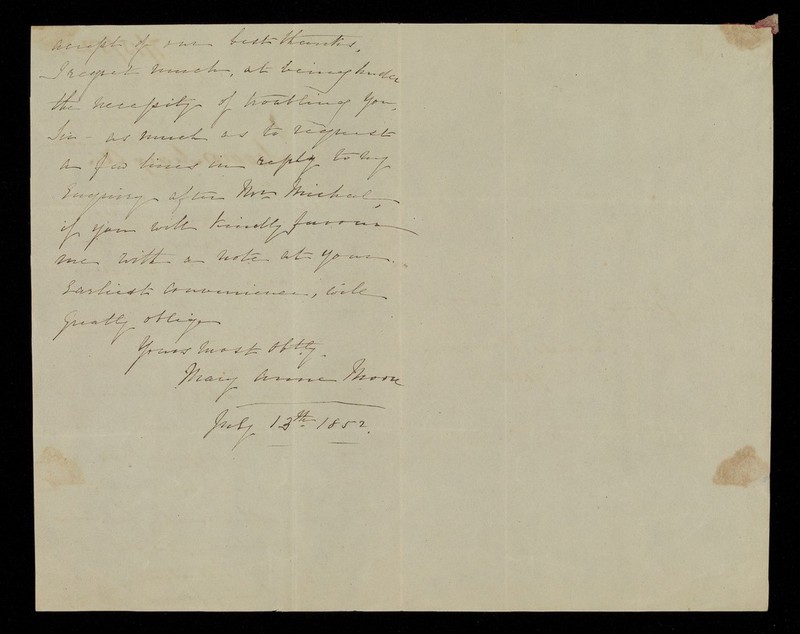 accept of our best thanks,
I regret much, at being under
the necessity of troubling you,
Sir - as much as to request
a few lines in reply to my
Enquiry after Mrs Michel,
if you will kindly favour
me with a note at your
Earliest convenience, will
greatly oblige
Yours most obtly.
Mary Anne Moore
July 13th 1852.